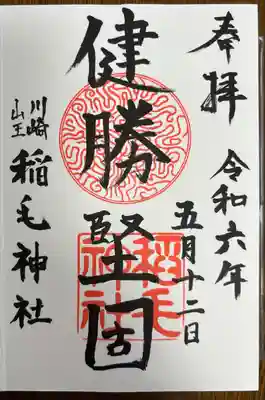 奉拝
令和六年
五月十二日
健勝堅固
稲毛
神社
川崎
山王
稲毛神社